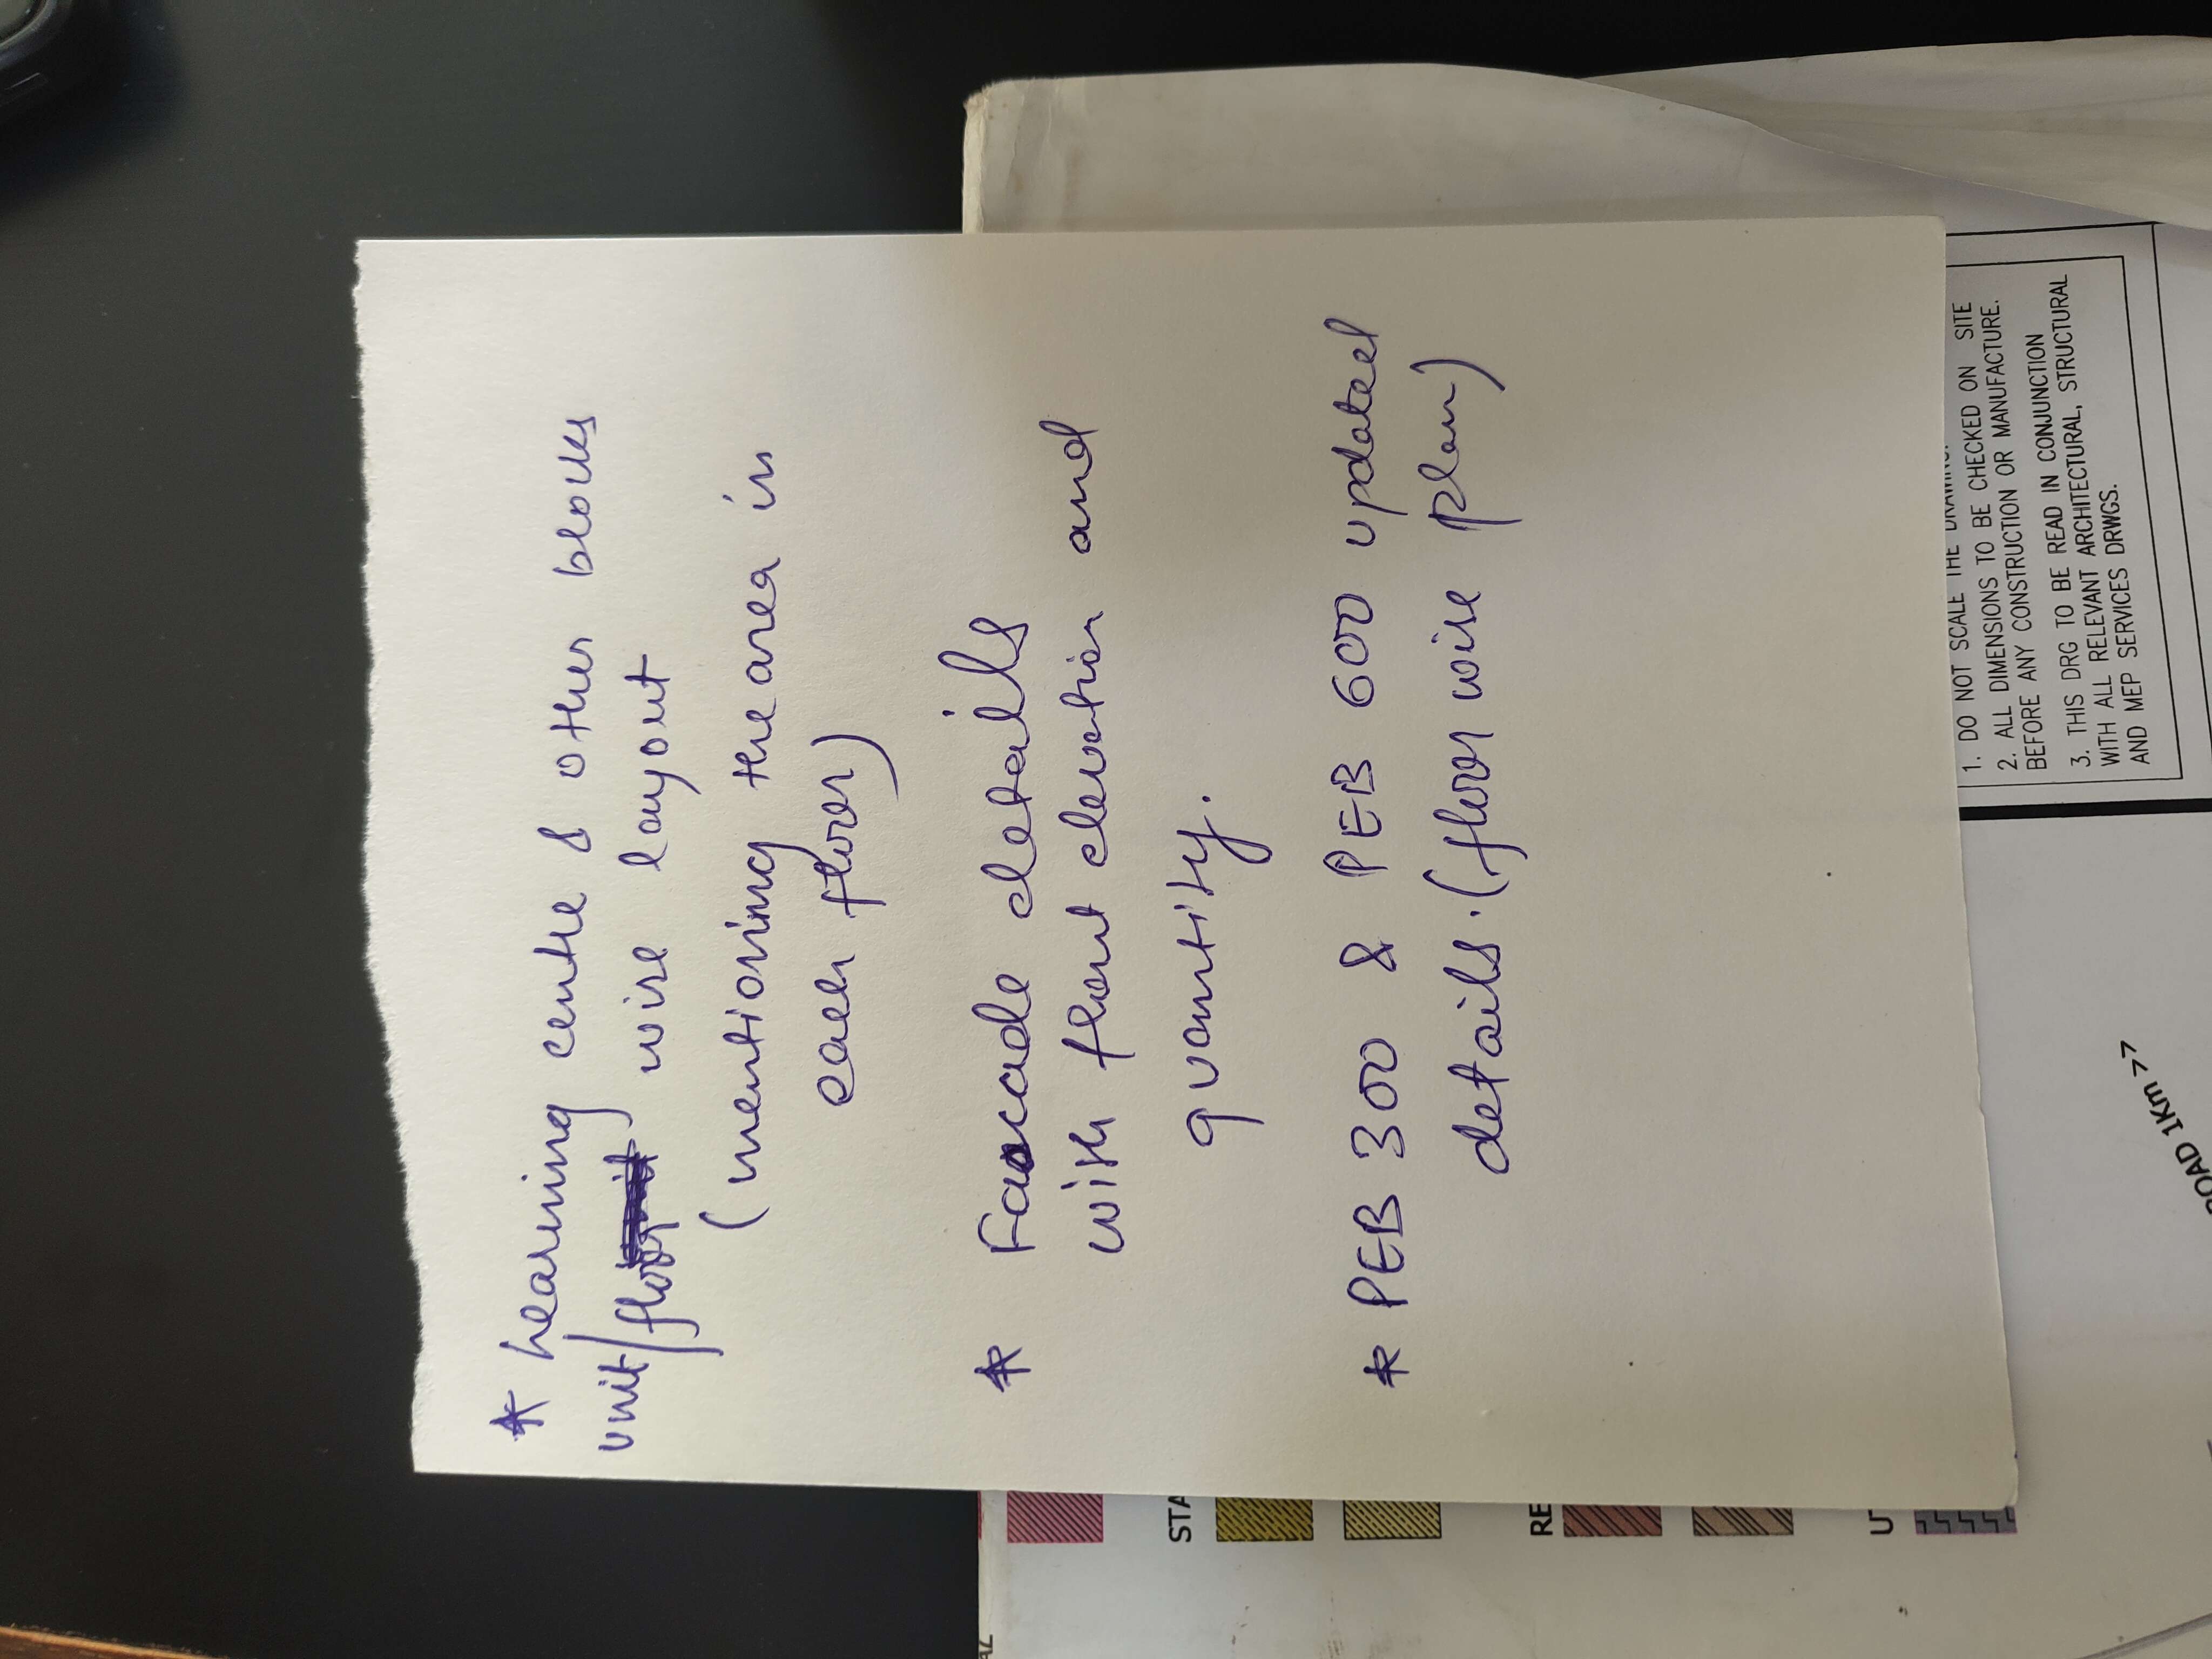 * Learning centre & other blocks
unit/floor wise layout
(mentioning the area in
each floor)
* Facade details
with front elevation and
quantity.
* PEB 300 & PEB 600 updated
details. (floor wise plan)
1. DO NOT SCALE THE DRAWING.
2. ALL DIMENSIONS TO BE CHECKED ON SITE
BEFORE ANY CONSTRUCTION OR MANUFACTURE.
3. THIS DRG TO BE READ IN CONJUNCTION
WITH ALL RELEVANT ARCHITECTURAL, STRUCTURAL
AND MEP SERVICES DRWGS.
STA
RE
OAD 1Km >>